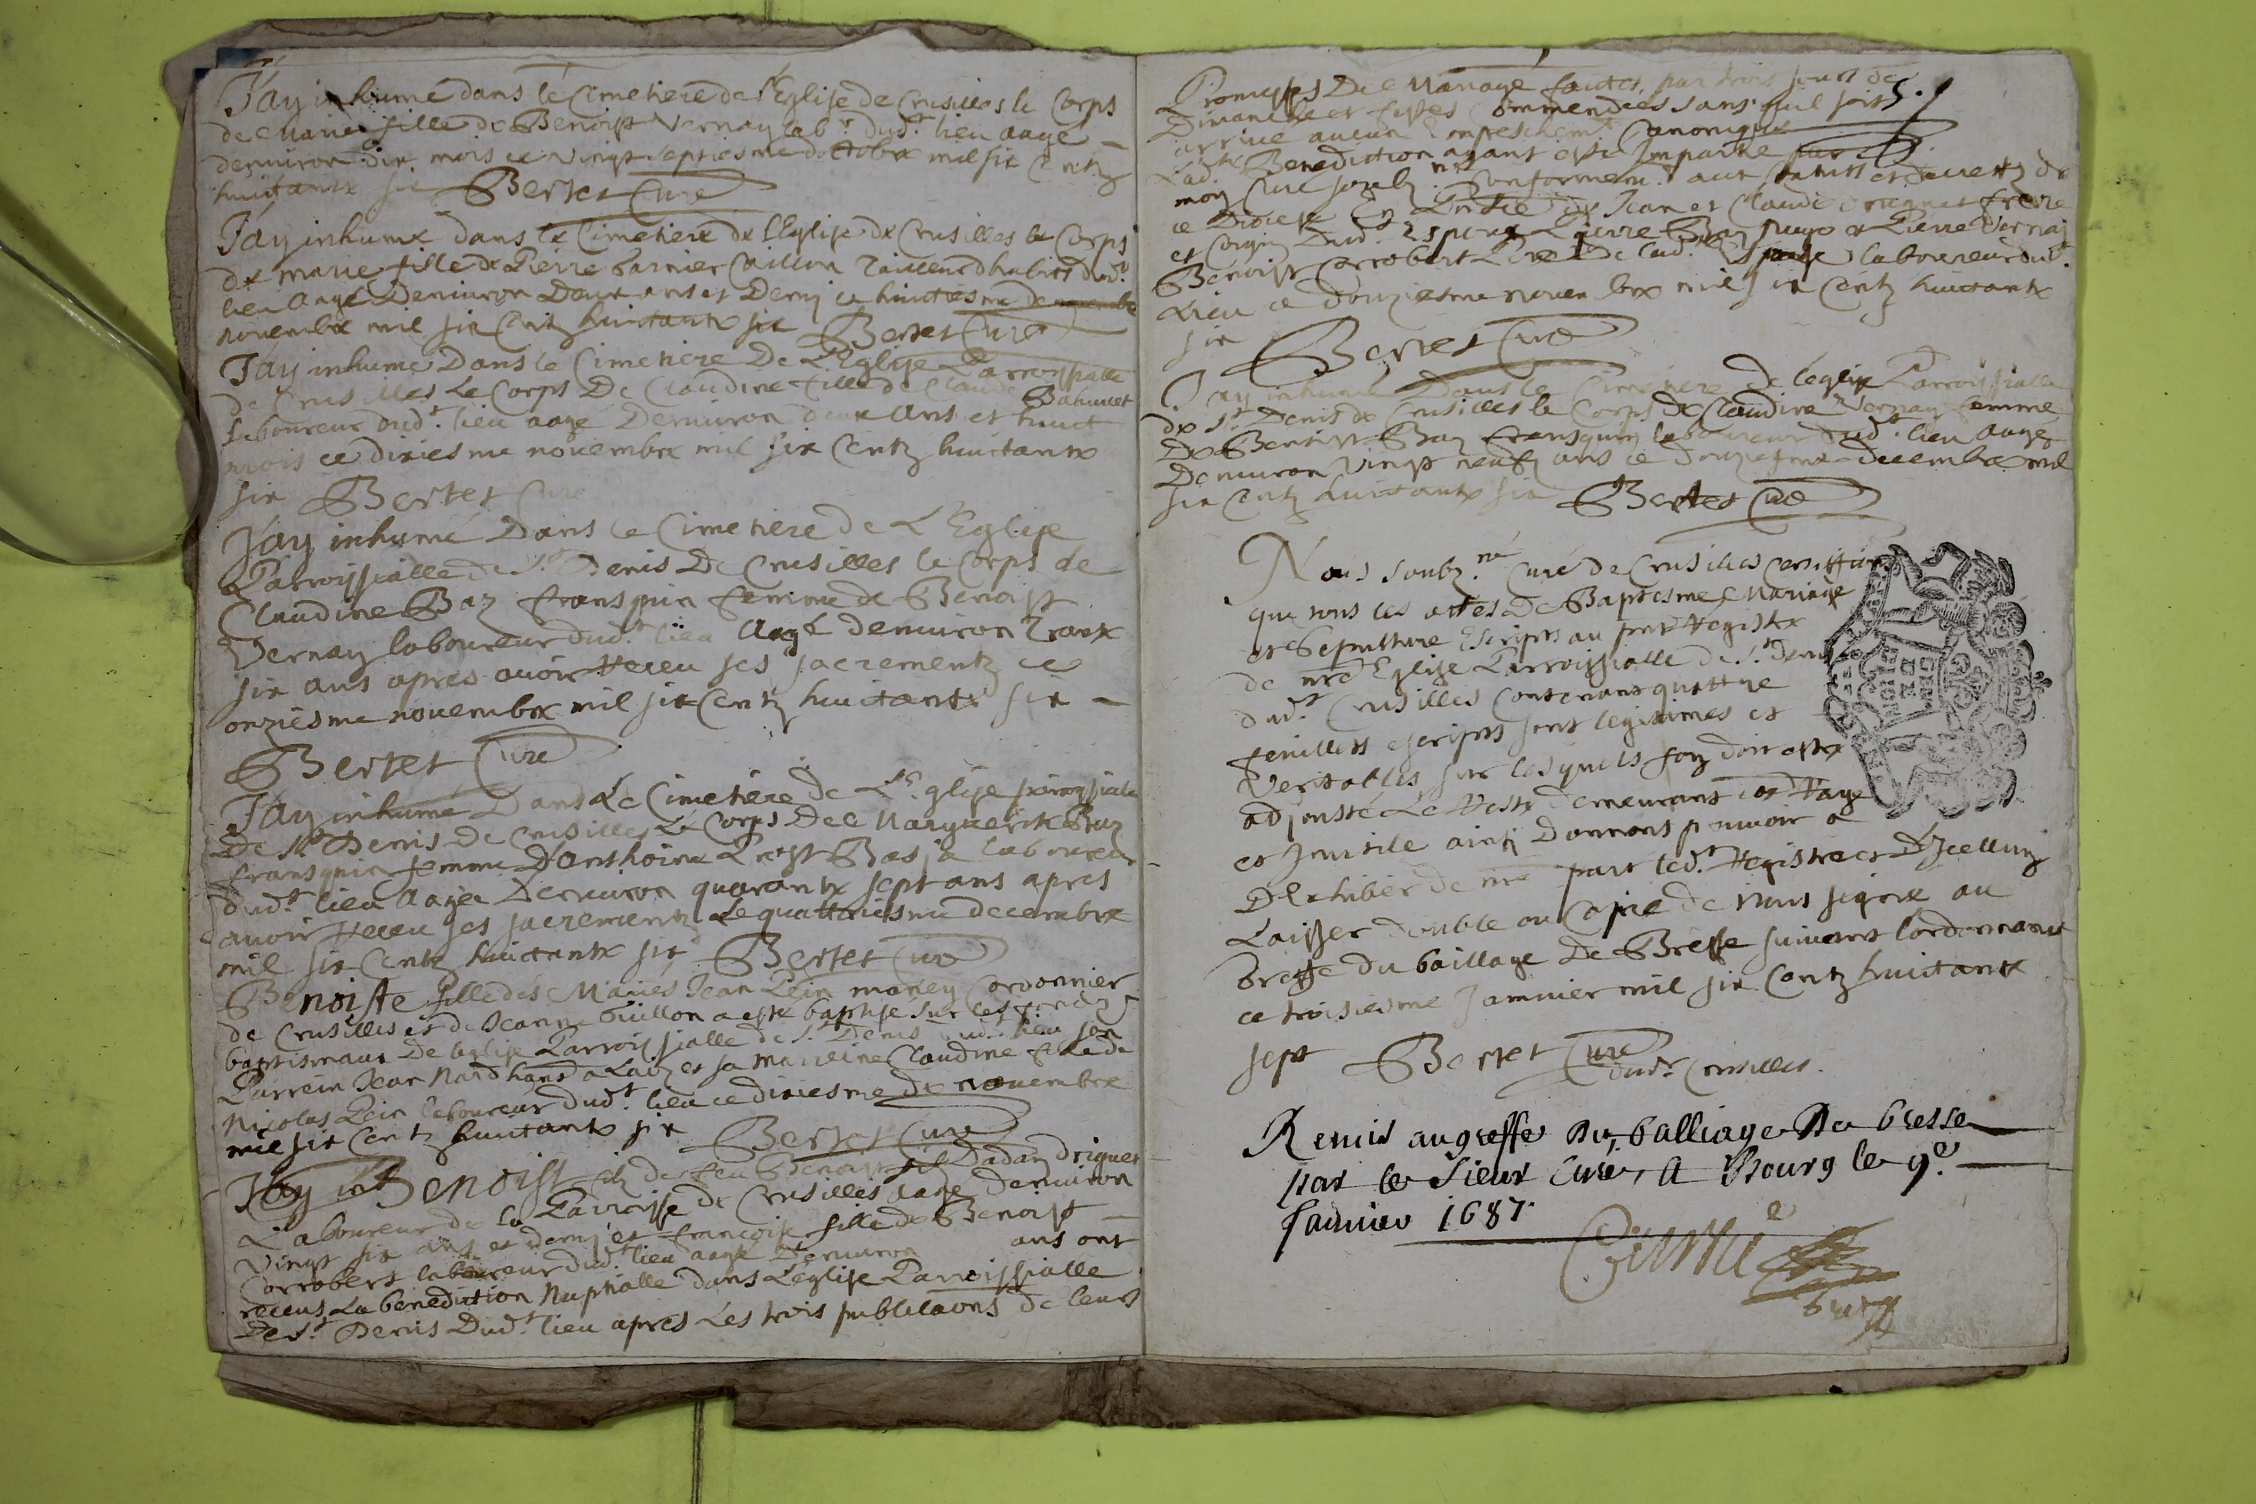 Jay inhumé dans le Cimetiere de l'Eglise de Crusilles le Corps
de Marie fille de Benoist Vernay lab.r dud.t lieu aagé
denuiron dix mois ce vingt septiesme doctobre mil six Centz
huictante six Bertet Curé
Jay inhume dans le Cimetiere de l'Eglise de Crusilles le Corps
de Marie fille de Pierre Tailleur dhabits dud.t
lieu Aagé Denuiron Deux ans et Demy ce huictiesme
novembre mil six Centz huictante six Bertet Curé
Jay inhumé Dans le Cimetiere De L'Eglise Parroissialle
de Crusilles Le Corps De Claudine fille de Claude
laboureur dud.t lieu aagé Denuiron deux Ans et huict
mois ce dixiesme novembre mil six Centz huictante
six Bertet Curé
Jay inhumé Dans le Cimetiere de L'Eglise
Parroissialle de S.t Denis De Crusilles le Corps de
Claudine Baz franspuin femme de Benoist
Vernay laboureur dud.t lieu Aagé denuiron Trante
six ans apres avoir Receu ses sacrementz ce
onziesme novembre mil six Centz huictante six
Bertet Curé
Jay inhumé Dans Le Cimetiere de L'Eglise parroissiale
De S.t Denis De Crusilles Le Corps De Marguerite Baz
fransquin femme D'Anthoine laboureur
dud.t lieu Aagée Denuiron quarante sept ans apres
avoir Receu ses sacrementz Le quattriesme decembre
mil six Centz huictante six Bertet Curé
Benoiste fille des Mariés Jean Pein Cordonnier
de Crusilles et de Jeanne Guillon a este baptise sur les fondz
baptismaux De l'eglise Parroissialle de S.t Denis dud.t lieu son
Parrein Jean et sa Marreine Claudine fille de
Nicolas Pein laboureur dud.t lieu ce dixiesme de novembre
mil six Centz huictante six Bertet Curé
Benoist filz de feu Benoist
Laboureur de la Parroisse de Crusilles aagé denuiron
vingt six ans et demy et françoise fille de Benoist
Corrobert laboureur dud.t lieu aagé Denuiron ans ont
receus La benediction Nuptialle dans L'eglise Parroissialle
De S.t Denis Dud.t lieu apres Les trois publicaons de leurs
Promesses De Mariage faictes, par trois jours de
Dimanche et festes Commendées sans quil soit
arrivé aucun Empeschem.t Canonique
Lad.te Benediction ayant esté Impartie par
moy Curé soubz.né Conformem.t aux statutz et decretz de
ce Diocese En Presence de Jean et Claude frere
et Cousin Dud.t espoux Pierre Baz Pierre Vernay
Benoist Corrobert Pere De lad.te Espouse laboureur dud.t
Lieu ce douziesme novembre mil six Centz huictante
six Bertet Curé
Jay inhumé Dans le Cimetiere De l'eglise Parroissialle
de S.t Denis de Crusilles le Corps de Claudine Vernay femme
De Benoist Baz fransquin laboureur dud.t lieu Aagé
Denuiron Vingt neufz ans ce douziesme decembre mil
six Centz huictante six Bertet Curé
Nous soubz.né Curé de Crusilles Certiffions
que tous les actes De Baptesme Mariage
et Sepulture Escripts au pnt Registre
de nre Eglise Parroissialle de S.t Denis
dud.t Crusilles Contenant quattre
feuillets escripts sont legitimes et
Veritables sur lesquels foy doit estre
adjousté Le Reste demeurant
et Inutile ainsi Donnons pouvoir a
D'Exhiber de nre part led.t Registre et D'Icelluy
Laisser double ou Copie de Nous signée au
Greffe du bailliage De Bresse suivant lordonnance
ce troisiesme Jannuier mil six Centz huictante
sept Bertet Curé
dud.t Crusilles.
Remis au greffe Du balliage De bresse
par le sieur Curé, A Bourg le 9e.
Januier 1687.